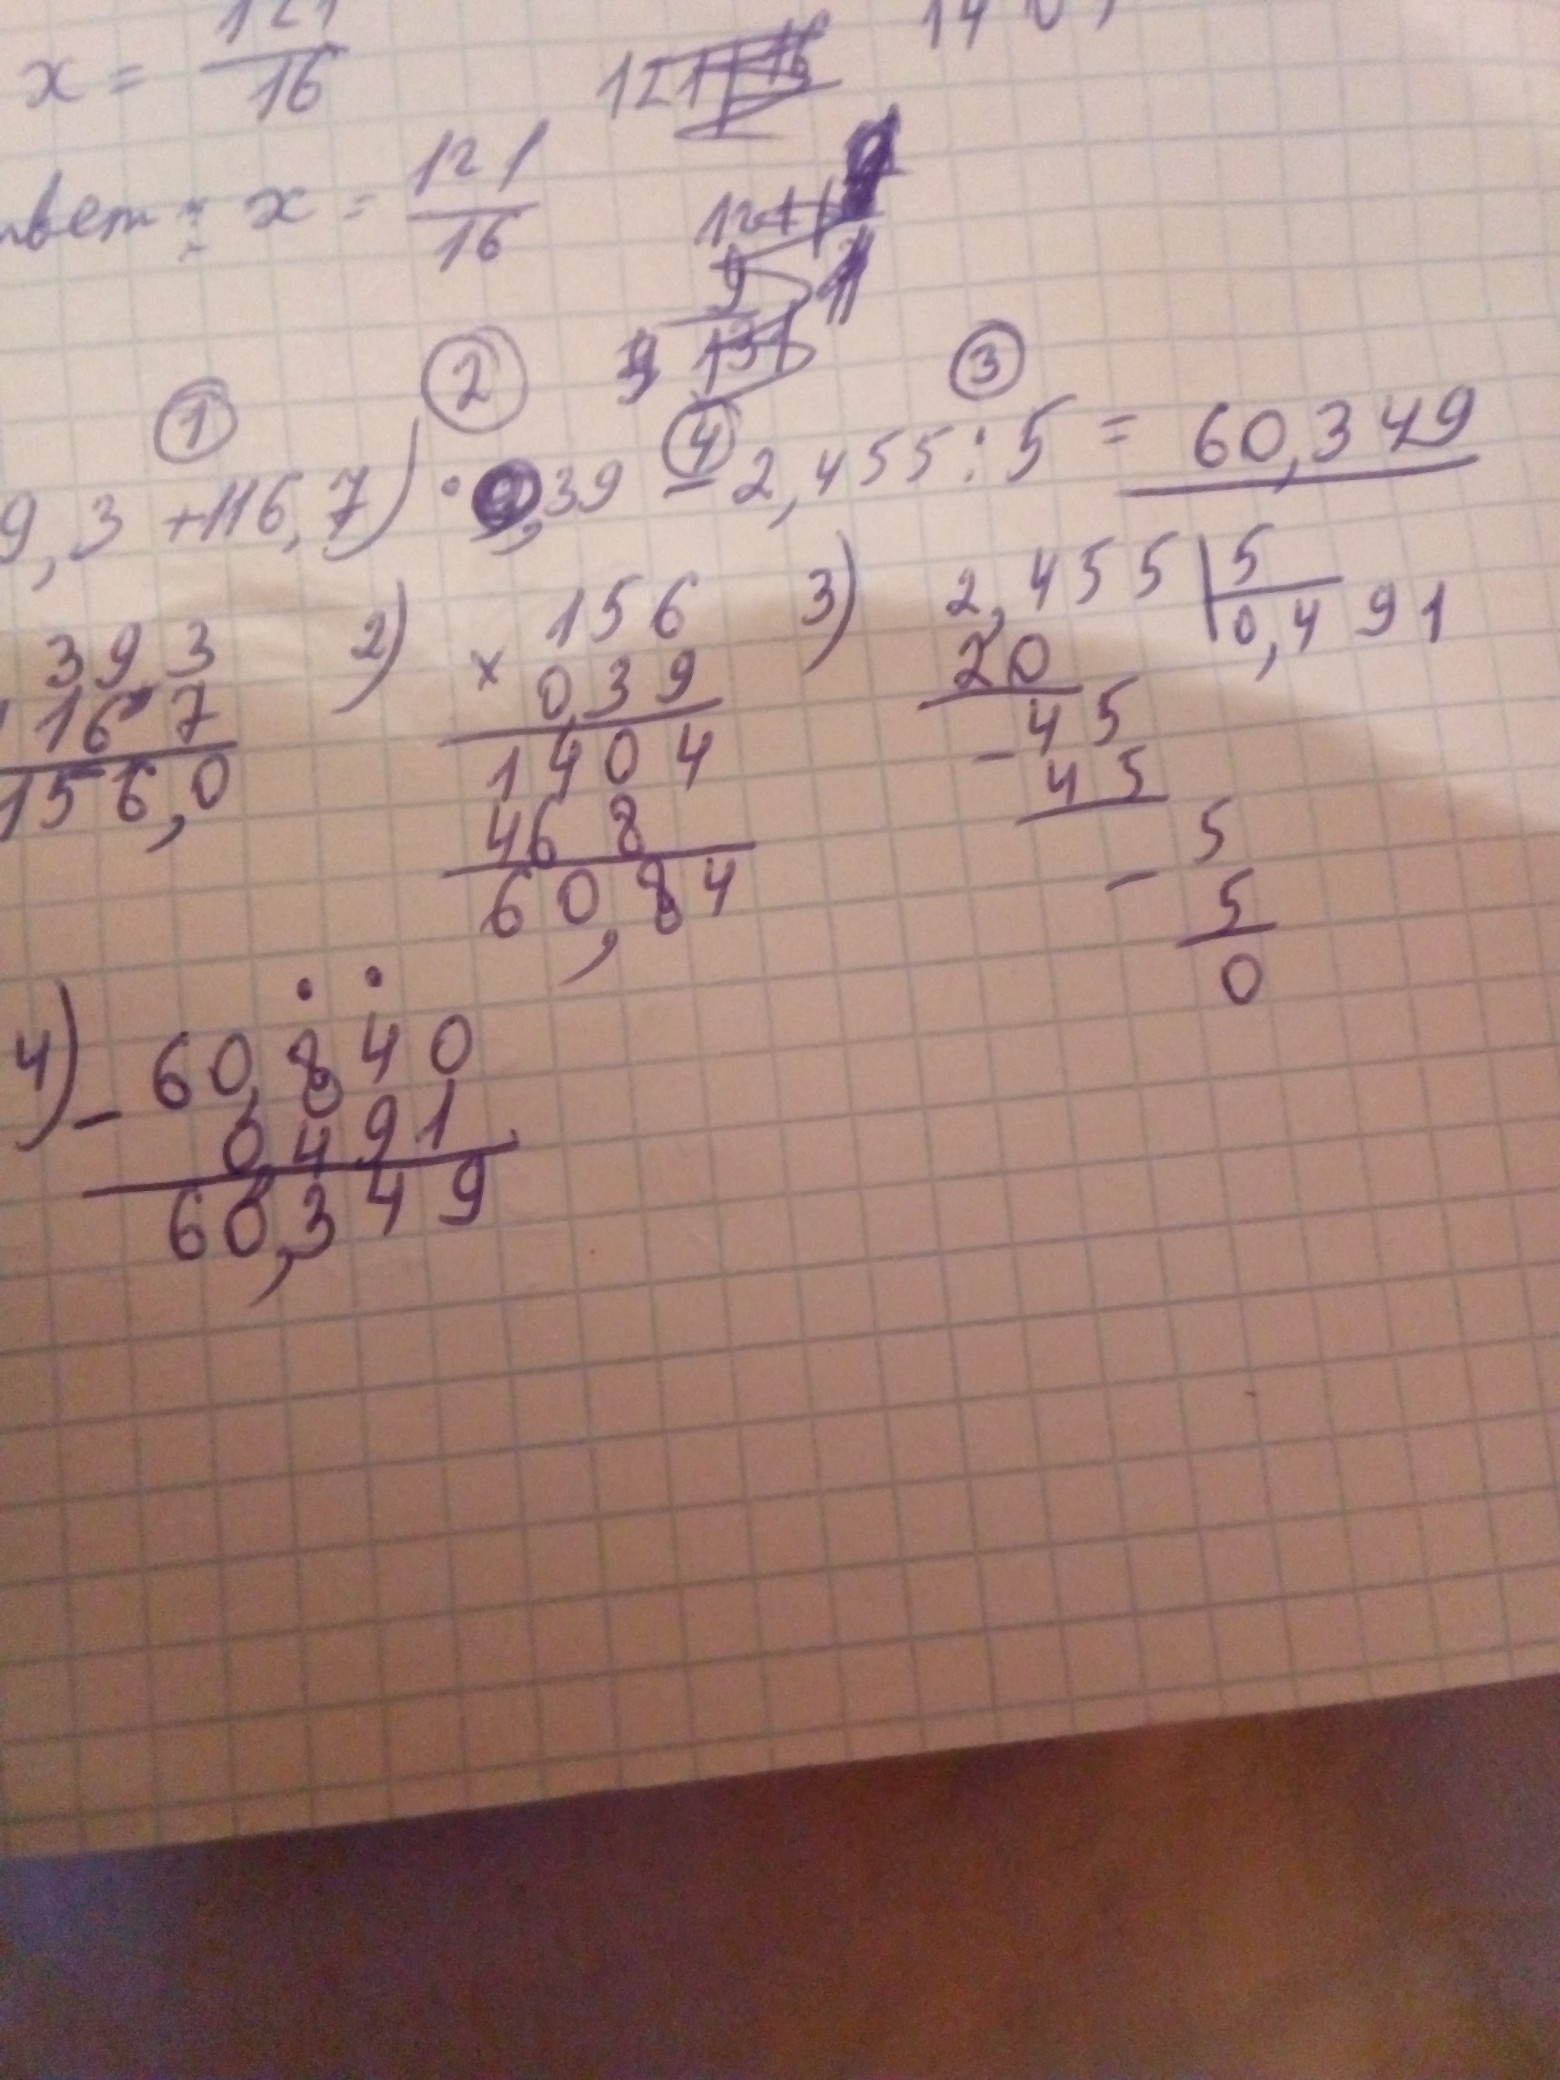 x = 121/16
твет: x = 121/16
121
① ② ④ ③
9,3 + 116,7) · 0,39 - 2,455 : 5 = 60,349
393
1167
156,0
2) 156
× 0,39
1404
468
60,84
3) 2,455 | 5
20 0,491
- 45
45
- 5
5
0
4) - 60,840
0,491
60,349